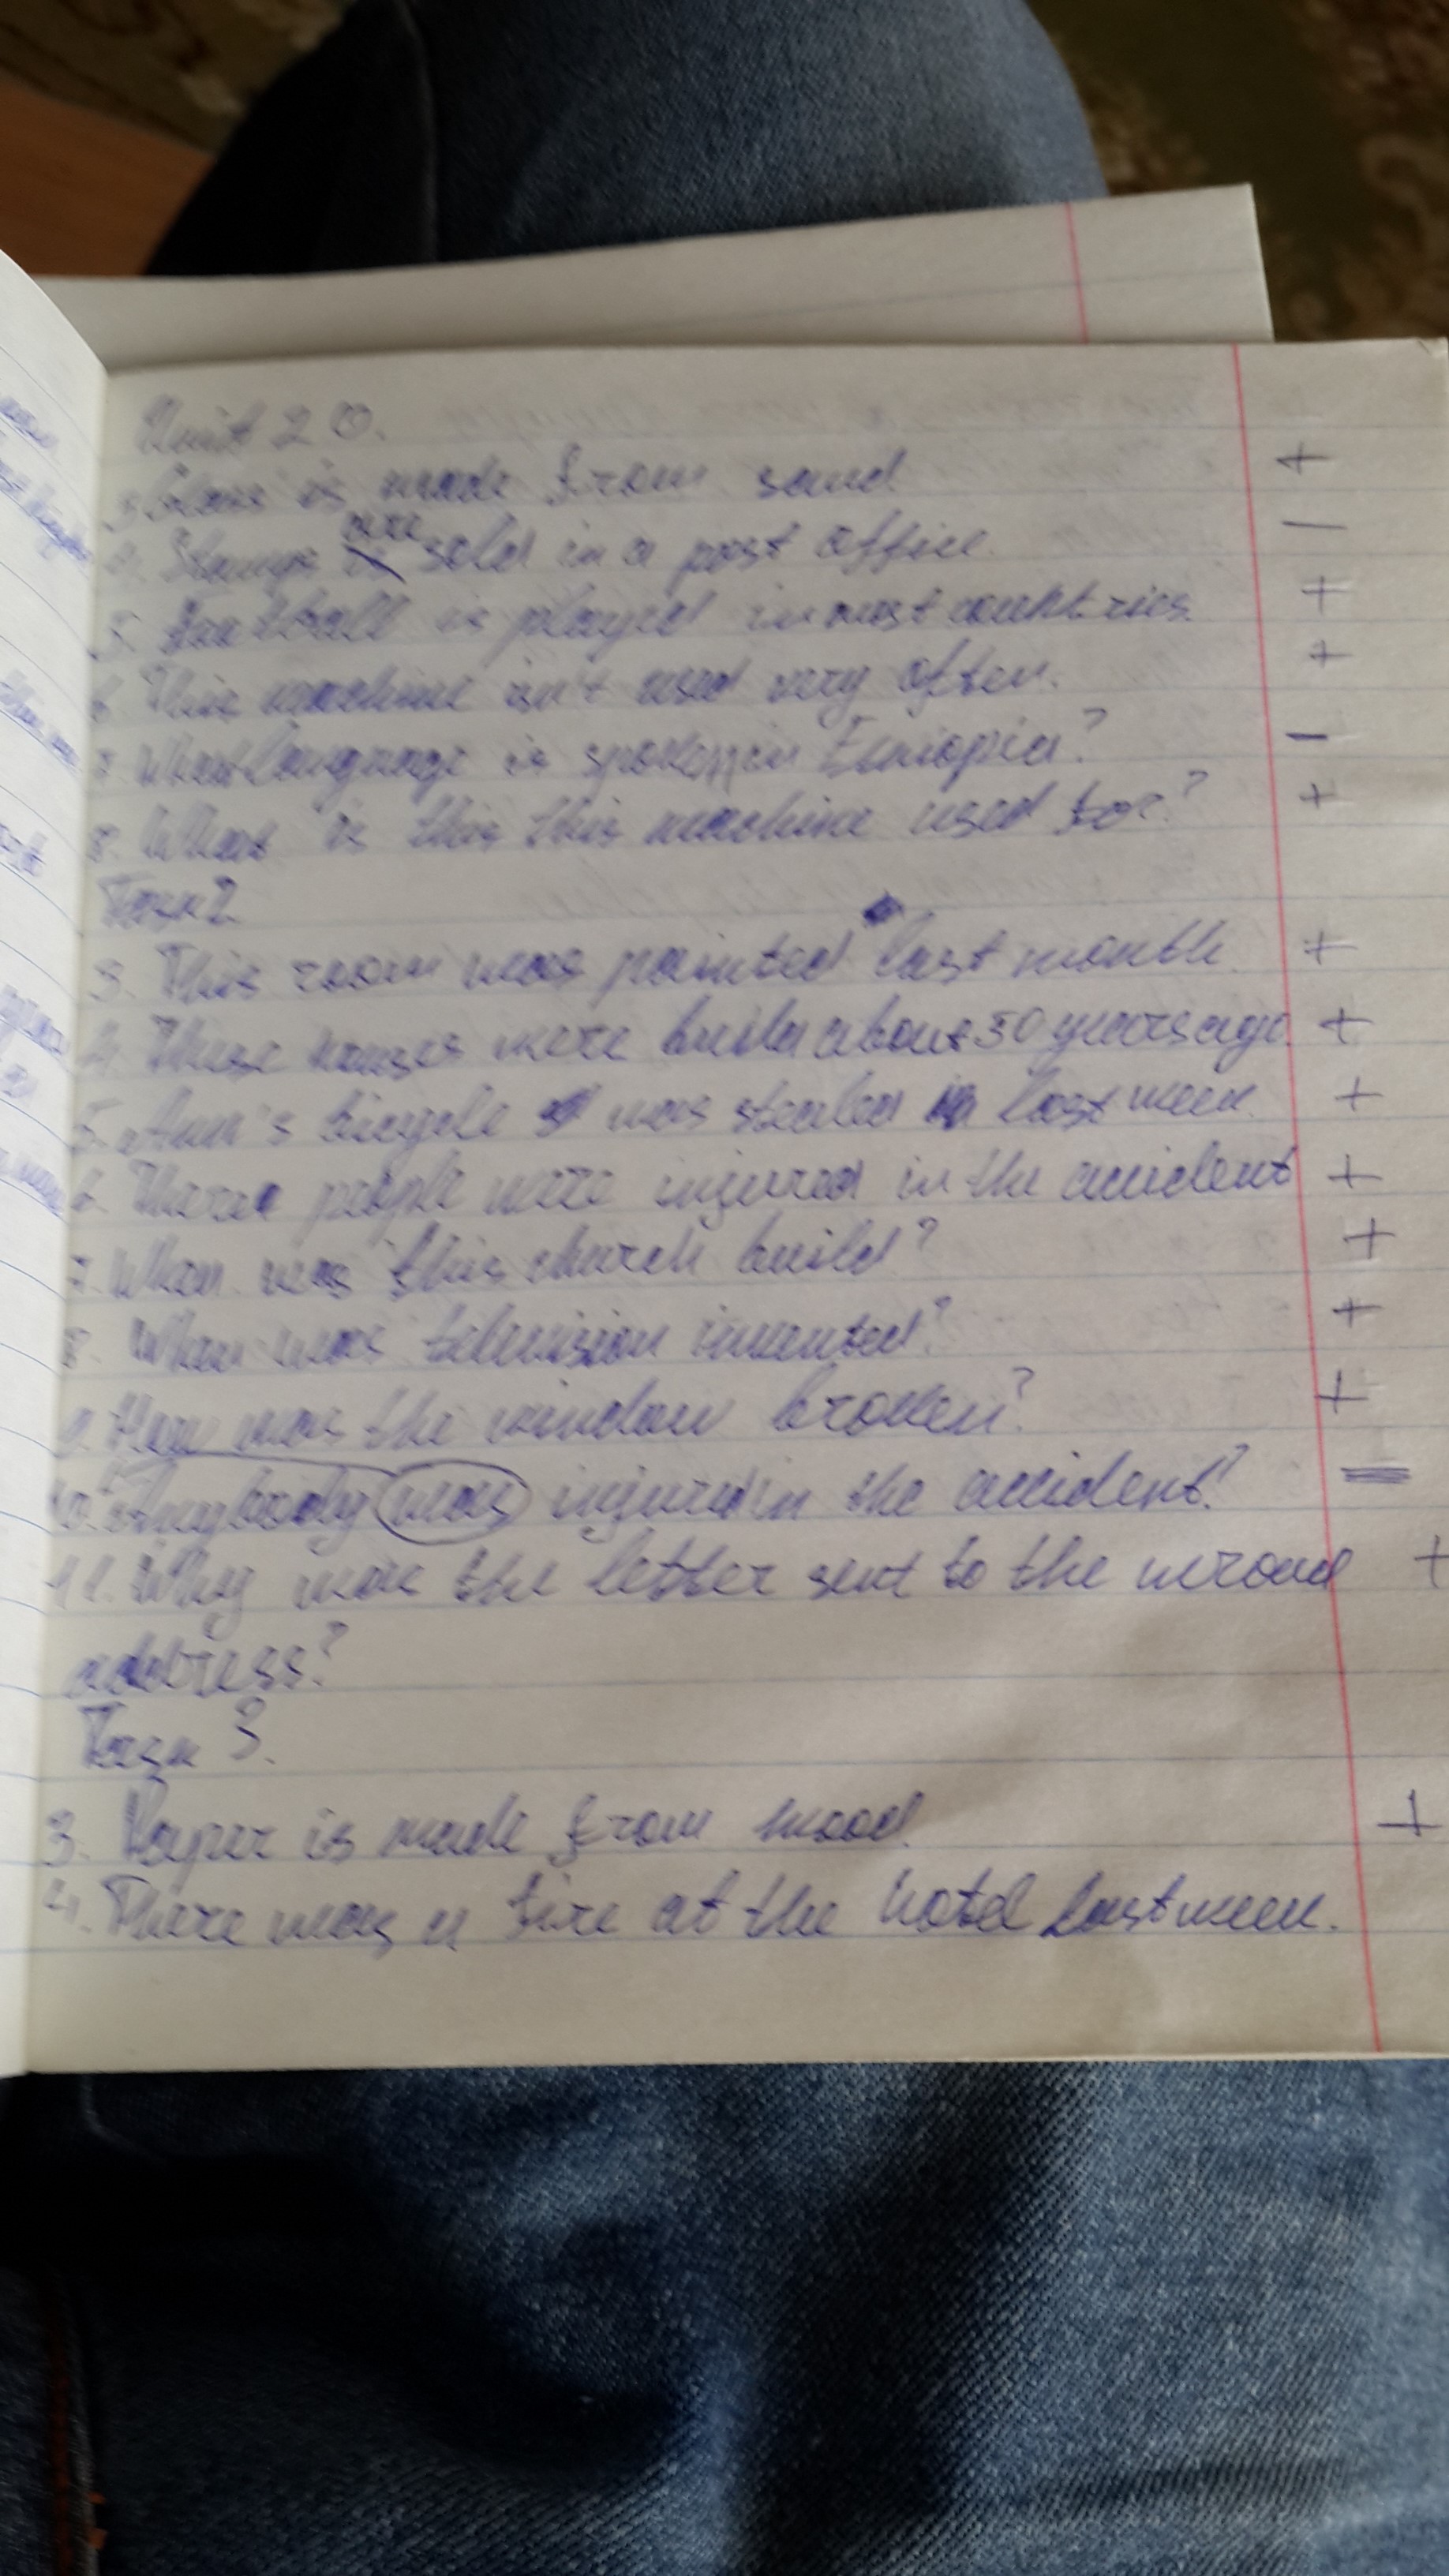 Unit 20.
3. Glass is made from sand +
4. Stamps is are sold in a post office. —
5. Football is played in most countries. +
6. This machine isn't used very often. +
7. What language is spoken in Ethiopia? -
8. What is this this machine used for? +
Task 2
3. This room was painted last month. +
4. These houses were build about 50 years ago. +
5. Ann's bicycle was last week. +
6. people were injured in the accident +
7. When was this church build? +
8. When was television invented? +
9. How was the window broken? +
10. Anybody was injured in the accident? =
11. Why was the letter sent to the +
address?
Task 3.
3. Paper is made from wood. +
4. There was a fire at the hotel last week.